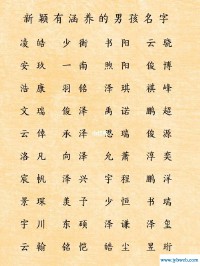 新颖有涵养的男孩名字
凌皓 少衡 书阳 云骁
安玖 一南 煦阳 俊博
浩康 羽铭 泽琪 祺峰
文琨 俊泽 禹诺 鹏超
云倬 承泽 思瑞 俊源
洛凡 向泽 允萧 淳奕
宸帆 泽兴 宇程 鹏洋
景琛 美子 少恒 书瑞
宇川 东硕 泽谦 泽玺
云翰 铭恺 皓尘 昱珩